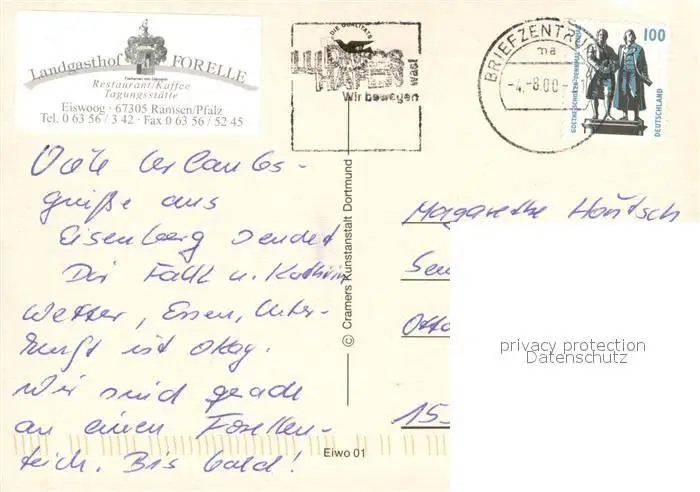 Landgasthof FORELLE
Restaurant/Kaffee
Tagungsstätte
Eiswoog · 67305 Ramsen/Pfalz
Tel. 0 63 56 / 3 42 · Fax 0 63 56 / 52 45
DIE QUALITÄTS
LUDWIGS
HAFEN
Wir bewegen was!
BRIEFZENTRUM
ma
-4.-8.00-
100
GOETHE-SCHILLER-DENKMAL WEIMAR
DEUTSCHLAND
Viele Urlaubs-
grüße aus
Eisenberg sendet
Dir Falk u. Kathrin
Wetter, Essen, Unter-
kunft ist okay.
Wir sind gerade
an einem Forellen-
teich. Bis bald!
© Cramers Kunstanstalt Dortmund
Eiwo 01
Margarethe
Otto
15
privacy protection
Datenschutz